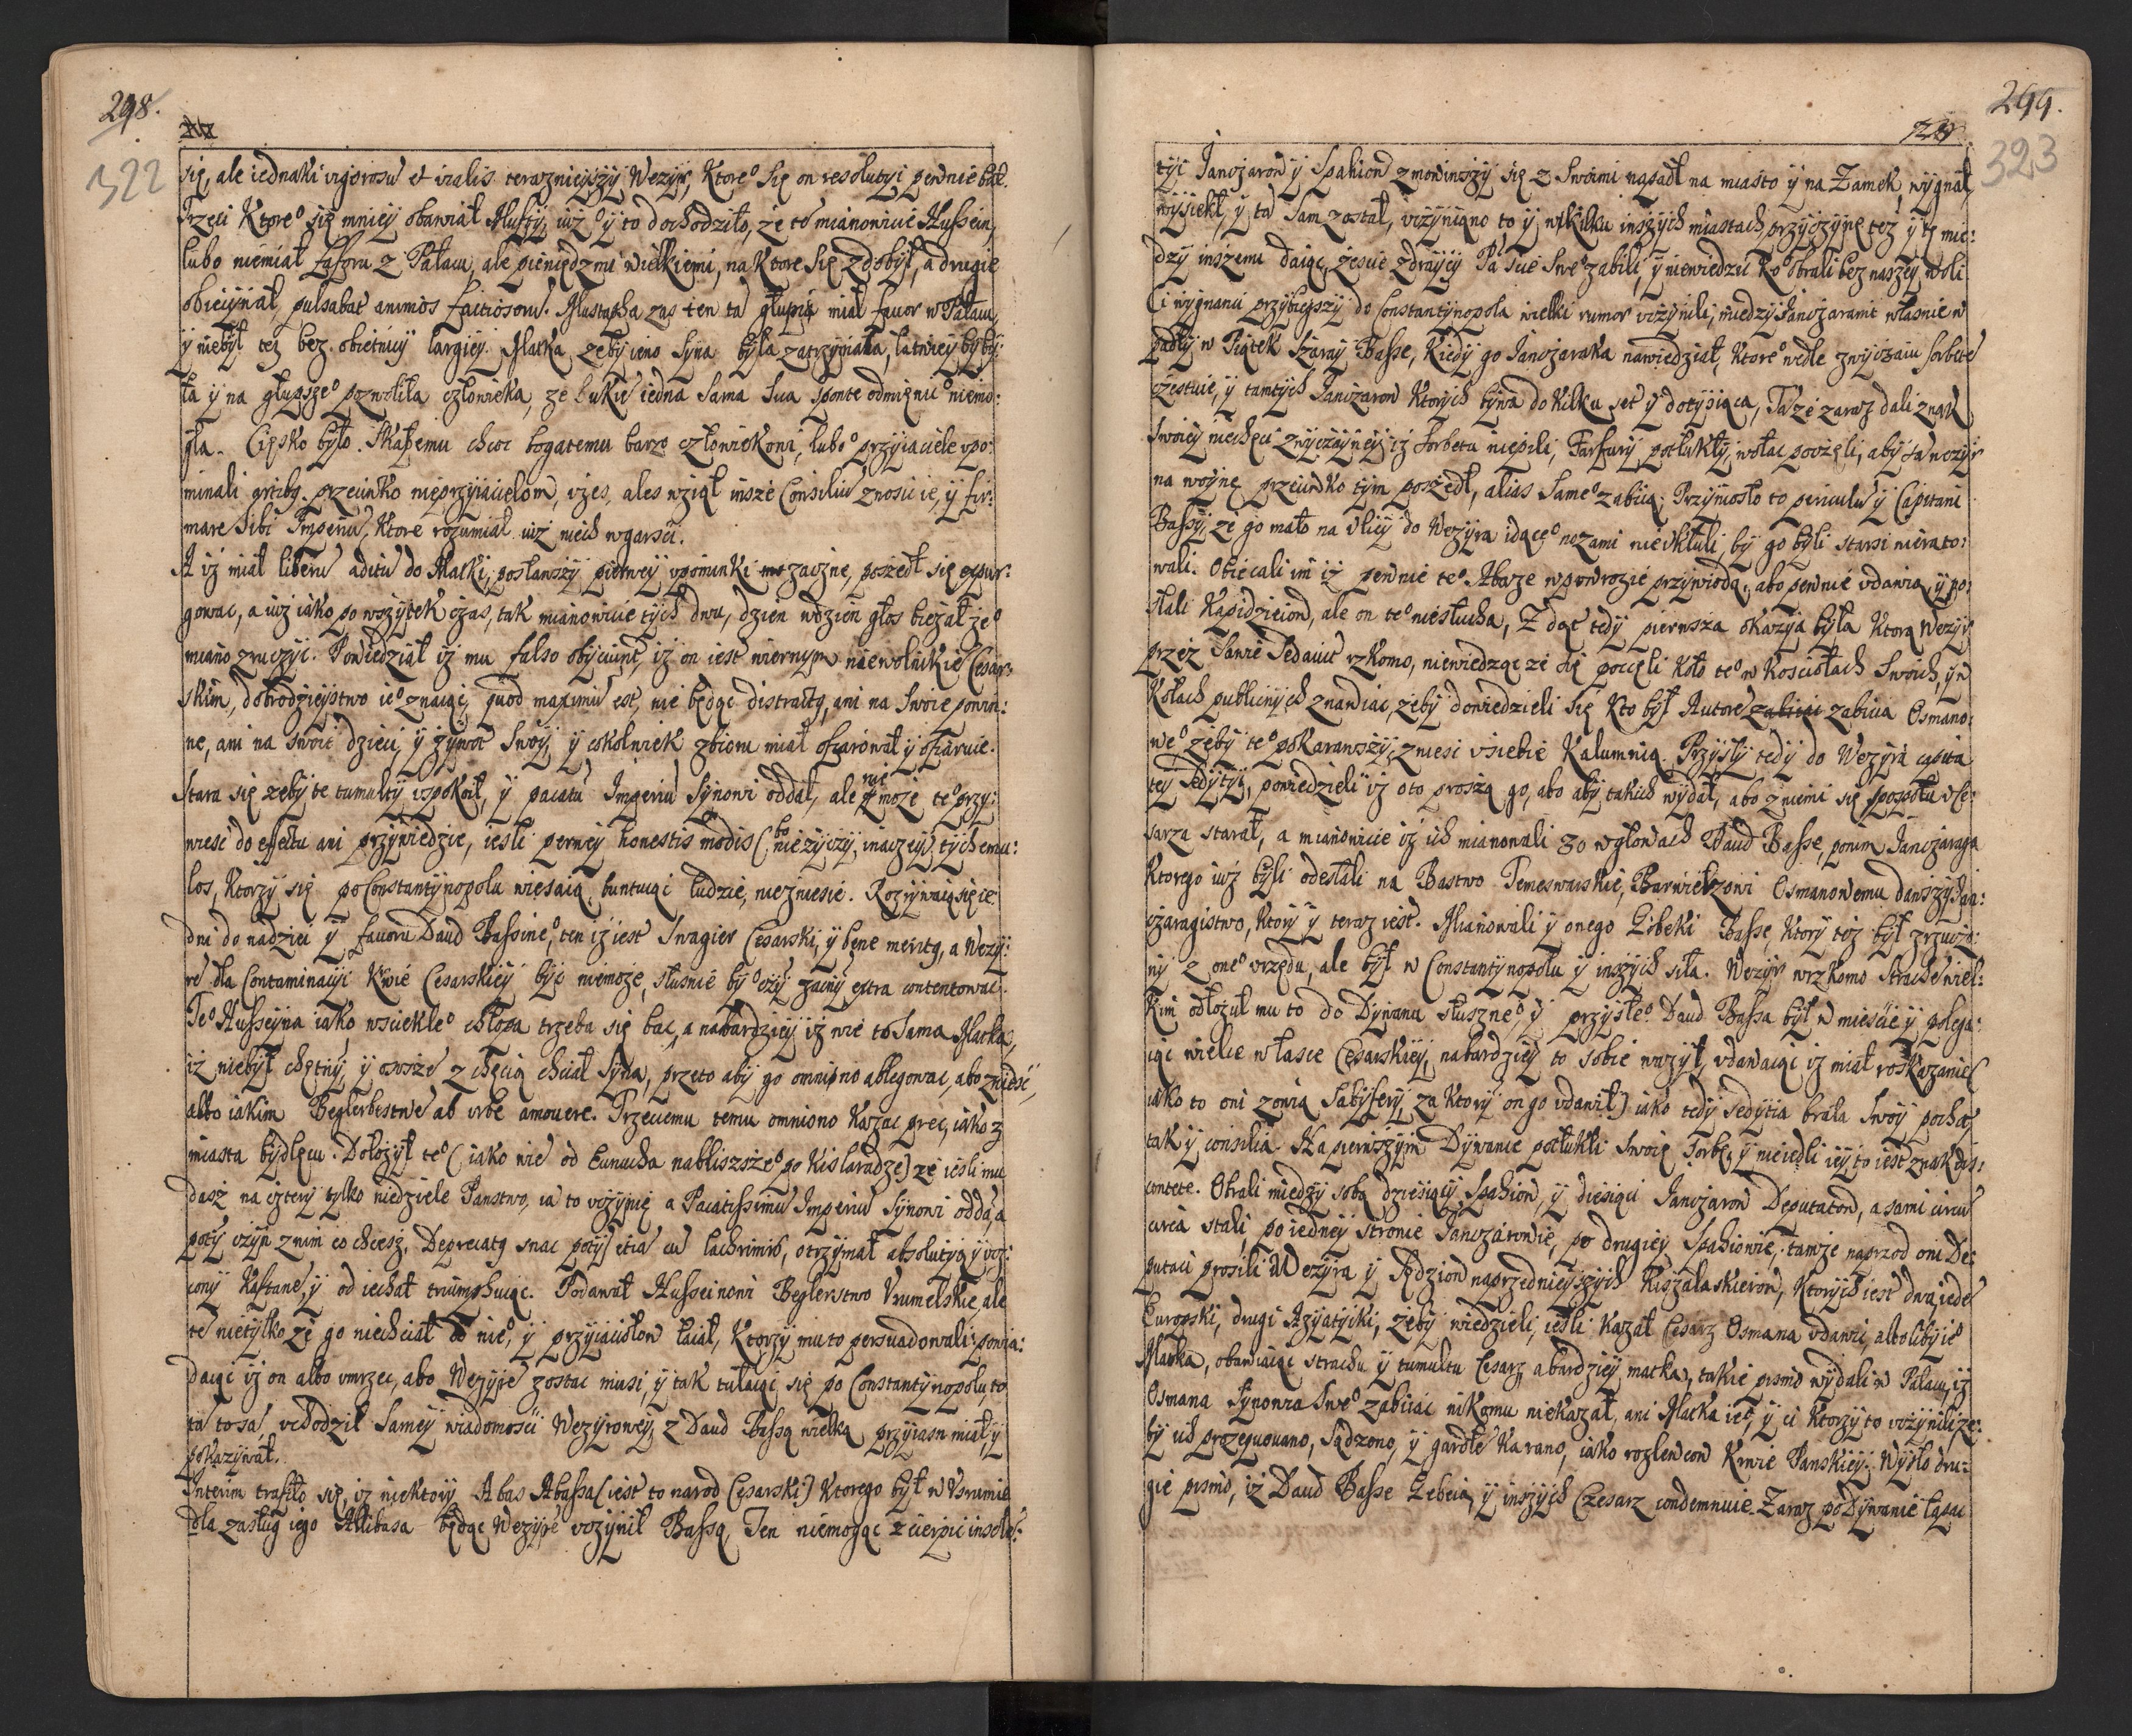 298.
322
się, ale iednaki vigorosu et viralis terazniejszÿ Wezÿr, Ktoreº się on resolutÿi pewnie bał.
Trzeci Ktoreº się mnieÿ obawiał Muftÿ, iużº ÿ to dochodziło, że to mianowicie Hussein,
lubo niemiał faforu z Pałacu, ale pieniędzmi wielkiemi, na Ktore się zdobÿł, a drugie
obiecÿwał, pulsabat animos factiosorum. Mustapha zas ten ta głupiā miał favor w Pałacu,
ÿ niebÿł też bez obietnicÿ largieÿ. Matka żebÿ ieno Sÿna bÿła zatrzÿmała, łatwieÿ bÿ bÿ:
ła ÿ na głupszeº pozwoliła człowieka, że Lukiē iedna sama sua sponte odmienicº niemo:
gła. Cięsko bÿło. Małemu chcoc bogatemu barzo człowiekowi, luboº przÿiaciele vpo:
minali przeciwko nieprzÿiaciołom, ales wziął insze Consiliū znosić ie, ÿ fir:
mare sibi Imperiū, Ktore rozumiał iuż niech wgarsci.
A iż miał liberū aditū do Matki, posławszÿ pierweÿ vpominki zaczne, poszedł się expur:
gowac, a iuż iako po wszÿtek czas, tak mianowicie tÿch dwu, dzien wdzien głos bieżał żeº
miano zruczÿc. Powiedział iż mu falso obÿciunt, iż on iest wiernÿm niewolnikiē Cesar:
skim, dobrodzieÿstwo ieº znaiąc, quod maximū est, nie będąc distractq, ani na swoie powin:
ne, ani na swoie dzieci, ÿ żÿwot swoÿ, ÿ cokolwiek zbioru miał ofiarował ÿ ofiaruie.
Stara się żebÿ te tumultÿ vspokoił, ÿ pacatū Imperiū Sÿnowi oddał, ale nie może teº przÿ:
wiesc do effectu ani przÿwiedzie, iesli perweÿ honestis modis (bo nieżÿczÿ inaczeÿ) tÿch emu:
los, Ktorzÿ się po Constantÿnopolu wieszaią, buntuiąc ludzie, niezniesie. Rozrÿwaią się ie
dni do nadziei ÿ favoru Daud Bassineº, ten iż iest Swagier Cesarski, ÿ bene meritq, a Wezÿ:
rē dla Contaminacÿi Krwie Cesarskieÿ bÿc niemoże, słusnie bÿ º czÿ zacnÿ extra contentowac.
Teº Husseÿna iako wsciekłeº chłopa trzeba się bac, a nabardzieÿ iż wie to Sama Matka,
iż niebÿł chętnÿ, ÿ owszē z chęcią chciał Sÿna, przeto abÿ go omnino ablegowac, abo zniesć,
albo iakim Beglerbestwē ab vrbe amovere. Trzeciemu temu omnino Kazac prec, iako z
miasta bÿdlęciu. Dołożÿł teº (iako wie od Eunucha nabliszszeº po Kislaradze) że iesli mu
dasz na czterÿ tÿlko niedziele Panstwo, ia to vczÿnię a Pacatissimū Imperiū Sÿnowi oddā, a
potÿ vczÿn znim co chcesz. Deprecatq snac potÿ etiā cū lachrimis, otrzÿmał absolutÿą ÿ vcz:
conÿ Kaftanē, ÿ od iechał triumphuiąc. Podawał Husseinowi Beglerstwo Vrumelskie, ale
tē nietÿlko że go niechciał do nieº, ÿ przÿiaciołow łaiał, Ktorzÿ mu to persuadowali: powia:
daiąc iż on albo vmrzec, abo Wezÿrē zostac musi, ÿ tak tułaiąc się po Constantÿnopolu, to
ta to sā, vchodził Sameÿ wiadomosci Wezÿroweÿ, z Daud Bassą wielką przÿiasn miał, ÿ
pokazÿwał.
Interim trafiło się, iż niektorÿ Abas Abassa (iest to narod Cesarski) Ktorego bÿł w Vsrumie
dla zasług iego Allibasa będąc Wezÿrē vczÿnił Bassą, Ten niemogąc zcierpic insolen:
299.
323
tÿi Janczarow ÿ Spahiow zmowiwszÿ się z Swoimi napadł na miasto ÿ na Zamek, wÿgnał,
wÿsiekł, ÿ ta Sam został, vczÿniono to ÿ w kilku inszÿch miastach, przÿczÿnę też ÿ tę mie:
dzÿ inszemi daiąc, żescie zdraÿcÿ Pa scie sweº zabili, ÿ niewiedziec Koº obrali bez naszeÿ woli
Ci wÿgnanci przÿbiegszÿ do Constantÿnopola wielki rumor vczÿnili, miedzÿ Janczarami własnie w
padłÿ w Piątek Szaraÿ Basse, Kiedÿ go Janczaraka nawiedział, Ktoreº wedle zwÿczaiu sorbetē
częstuie, ÿ tamtÿch Janczarow Ktorÿch bÿwa do Kilku set ÿ dotÿsiąca, Tazē zaraz dali znak
swoieÿ niechęci zwÿczaÿneÿ iż sorbetu niepili, Farfurÿ potłuklÿ, wołac poczęli, abÿ Sā Wezÿr
na woÿnę przeciwko tÿm poszedł, alias Sameº zabiią. Przÿniosło to periculū ÿ Capitani
Bassÿ, że go mało na vlicÿ do Wezÿra idąceº nożami nie vkłuli, bÿ go bÿli starsi nierato:
wali. Obiecali im iż pewnie teº Abaze wpowrozie przÿwiodą, abo pewnie vdawią, ÿ po:
słali Kapidzieiow, ale on teº niesłucha, Z dąc tedÿ pierwsza okazÿa bÿła Ktorą Wezÿr
przez Sawie Tedauit rzkomo, niewiedząc że się poczęli Koło teº w Kosciołach Swoich, ÿ w
Kołach publicznÿch znawiac, żebÿ dowiedzieli się Kto bÿł Autorē zabicia Osmano:
weº żebÿ teº pokarawszÿ, zniesi vsiebie Kalumnią. Przÿszlÿ tedÿ do Wezÿra capita
teÿ seditÿi, powiedzieli iż oto proszą go, abo abÿ takich wÿdał, abo z niemi się spospołu v Ce:
sarza starał, a mianowicie iż ich mianowali 30 w głowach Daud Basse, potim Janczaraga
Ktorego iuż bÿli odesłali na Bastwo Temeswarskie, Barwielzowi Osmanowemu dawszÿ Jan:
czaragistwo, Ktorÿ ÿ teraz iest. Mianowali ÿ onego Lubeki Basse, Ktorÿ też bÿł zrzuco:
nÿ z oneº vrzędu, ale bÿł w Constantÿnopolu ÿ inszÿch siła. Wezÿr wrzkomo strachē wiel:
kim odłożÿł mu to do Dÿwanu słuszneº, ÿ przÿszłeº. Daud Bassa bÿł w miescie ÿ polega:
iąc wielce w łasce Cesarskieÿ, nabardzieÿ to sobie ważÿł, vdawaiąc iż miał roskazanie (
iako to oni zowią Sabÿserÿ, za Ktorÿ on go vdawił) iako tedÿ seditia brała Swoÿ pochoſ
tak ÿ consilia. Na pierwszÿm Dÿwanie potłukłi Swoię Torbę, ÿ nieiedli ieÿ, to iest znak dis:
contēte. Obrali miedzÿ sobą dziesiącÿ Spahiow, ÿ dziesiąci Janczarow Deputatow, a sami circū
circa stali po iedneÿ stronie Janczarowie, po drugieÿ Spahiowie, tamże naprzod oni De:
putaci prosili Wezÿra ÿ Sędziow naprzednieÿszÿch Kiszałaskierow, Ktorÿch iest dwa, iedē
Europski, drugi Azÿatÿcki, żebÿ wiedzieli, iesli Kazał Cesarz Osmana vdawic, albo libÿ ieº
Matka, obawiaiąc strachu ÿ tumultu Cesarz a bardzieÿ matka, takie pismo wÿdali w Pałacu, iż
Osmana Sÿnowca Sweº zabiiac nikomu niekazał, ani Matka ieº, ÿ ci Ktorzÿ to vczÿnili, że:
bÿ ich prozequouano, sądzono, ÿ gardłē Karano, iako rozlewcow Krwie Panskieÿ. Wÿszło dru:
gie pismo, iż Daud Basse Lebecią ÿ inszÿch Czesarz condemnuie. Zaraz po Dÿwanie łapac